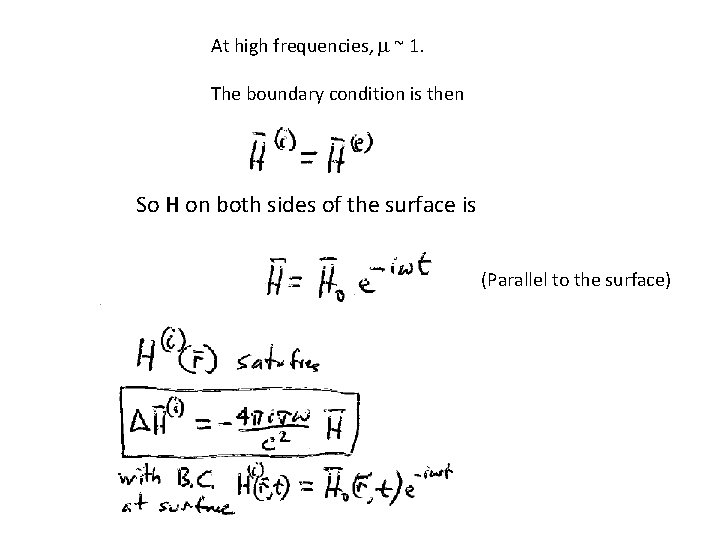 At high frequencies, μ ~ 1.
The boundary condition is then
H̄⁽ⁱ⁾ = H̄⁽ᵉ⁾
So H on both sides of the surface is
H̄ = H̄₀ e^{-iωt} (Parallel to the surface)
H⁽ⁱ⁾(r̄) satisfies
ΔH̄⁽ⁱ⁾ = - 4πiσω/c² H̄
with B.C. H⁽ⁱ⁾(r̄,t) = H̄₀(r̄,t) e^{-iωt}
at surface